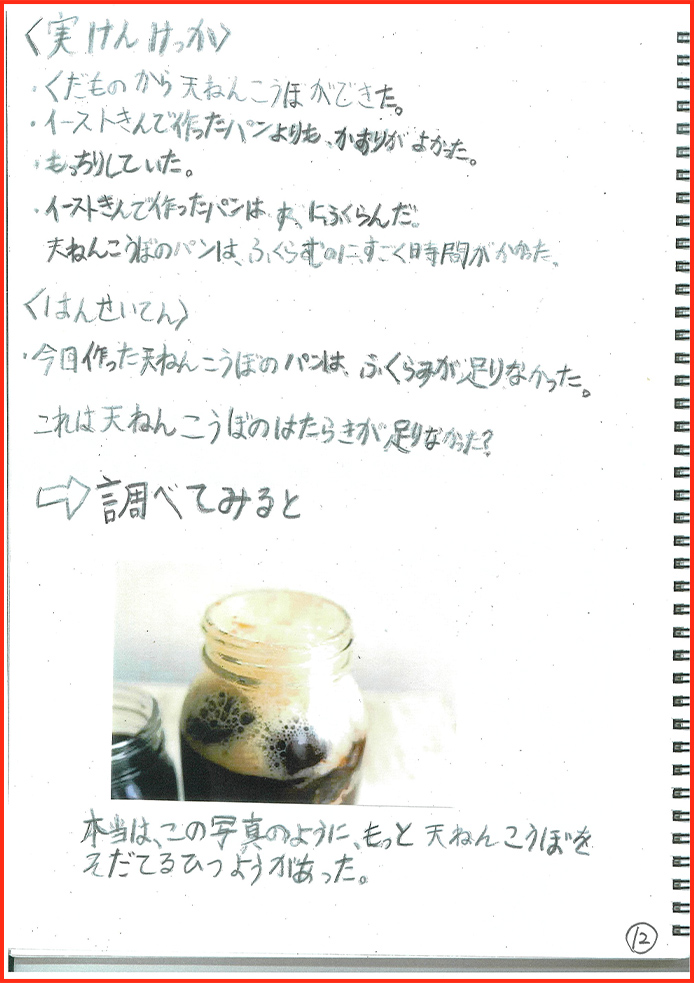 〈実けんけっか〉
・くだものから天ねんこうぼができた。
・イーストきんで作ったパンよりも、かおりがよかった。
・もっちりしていた。
・イーストきんで作ったパンは、すぐにふくらんだ。
天ねんこうぼのパンは、ふくらむのに、すごく時間がかかった。
〈はんせいてん〉
・今日作った天ねんこうぼのパンは、ふくらみが足りなかった。
これは天ねんこうぼのはたらきが足りなかった?
⇨調べてみると
本当は、この写真のように、もっと天ねんこうぼを
そだてるひつようがあった。
⑫